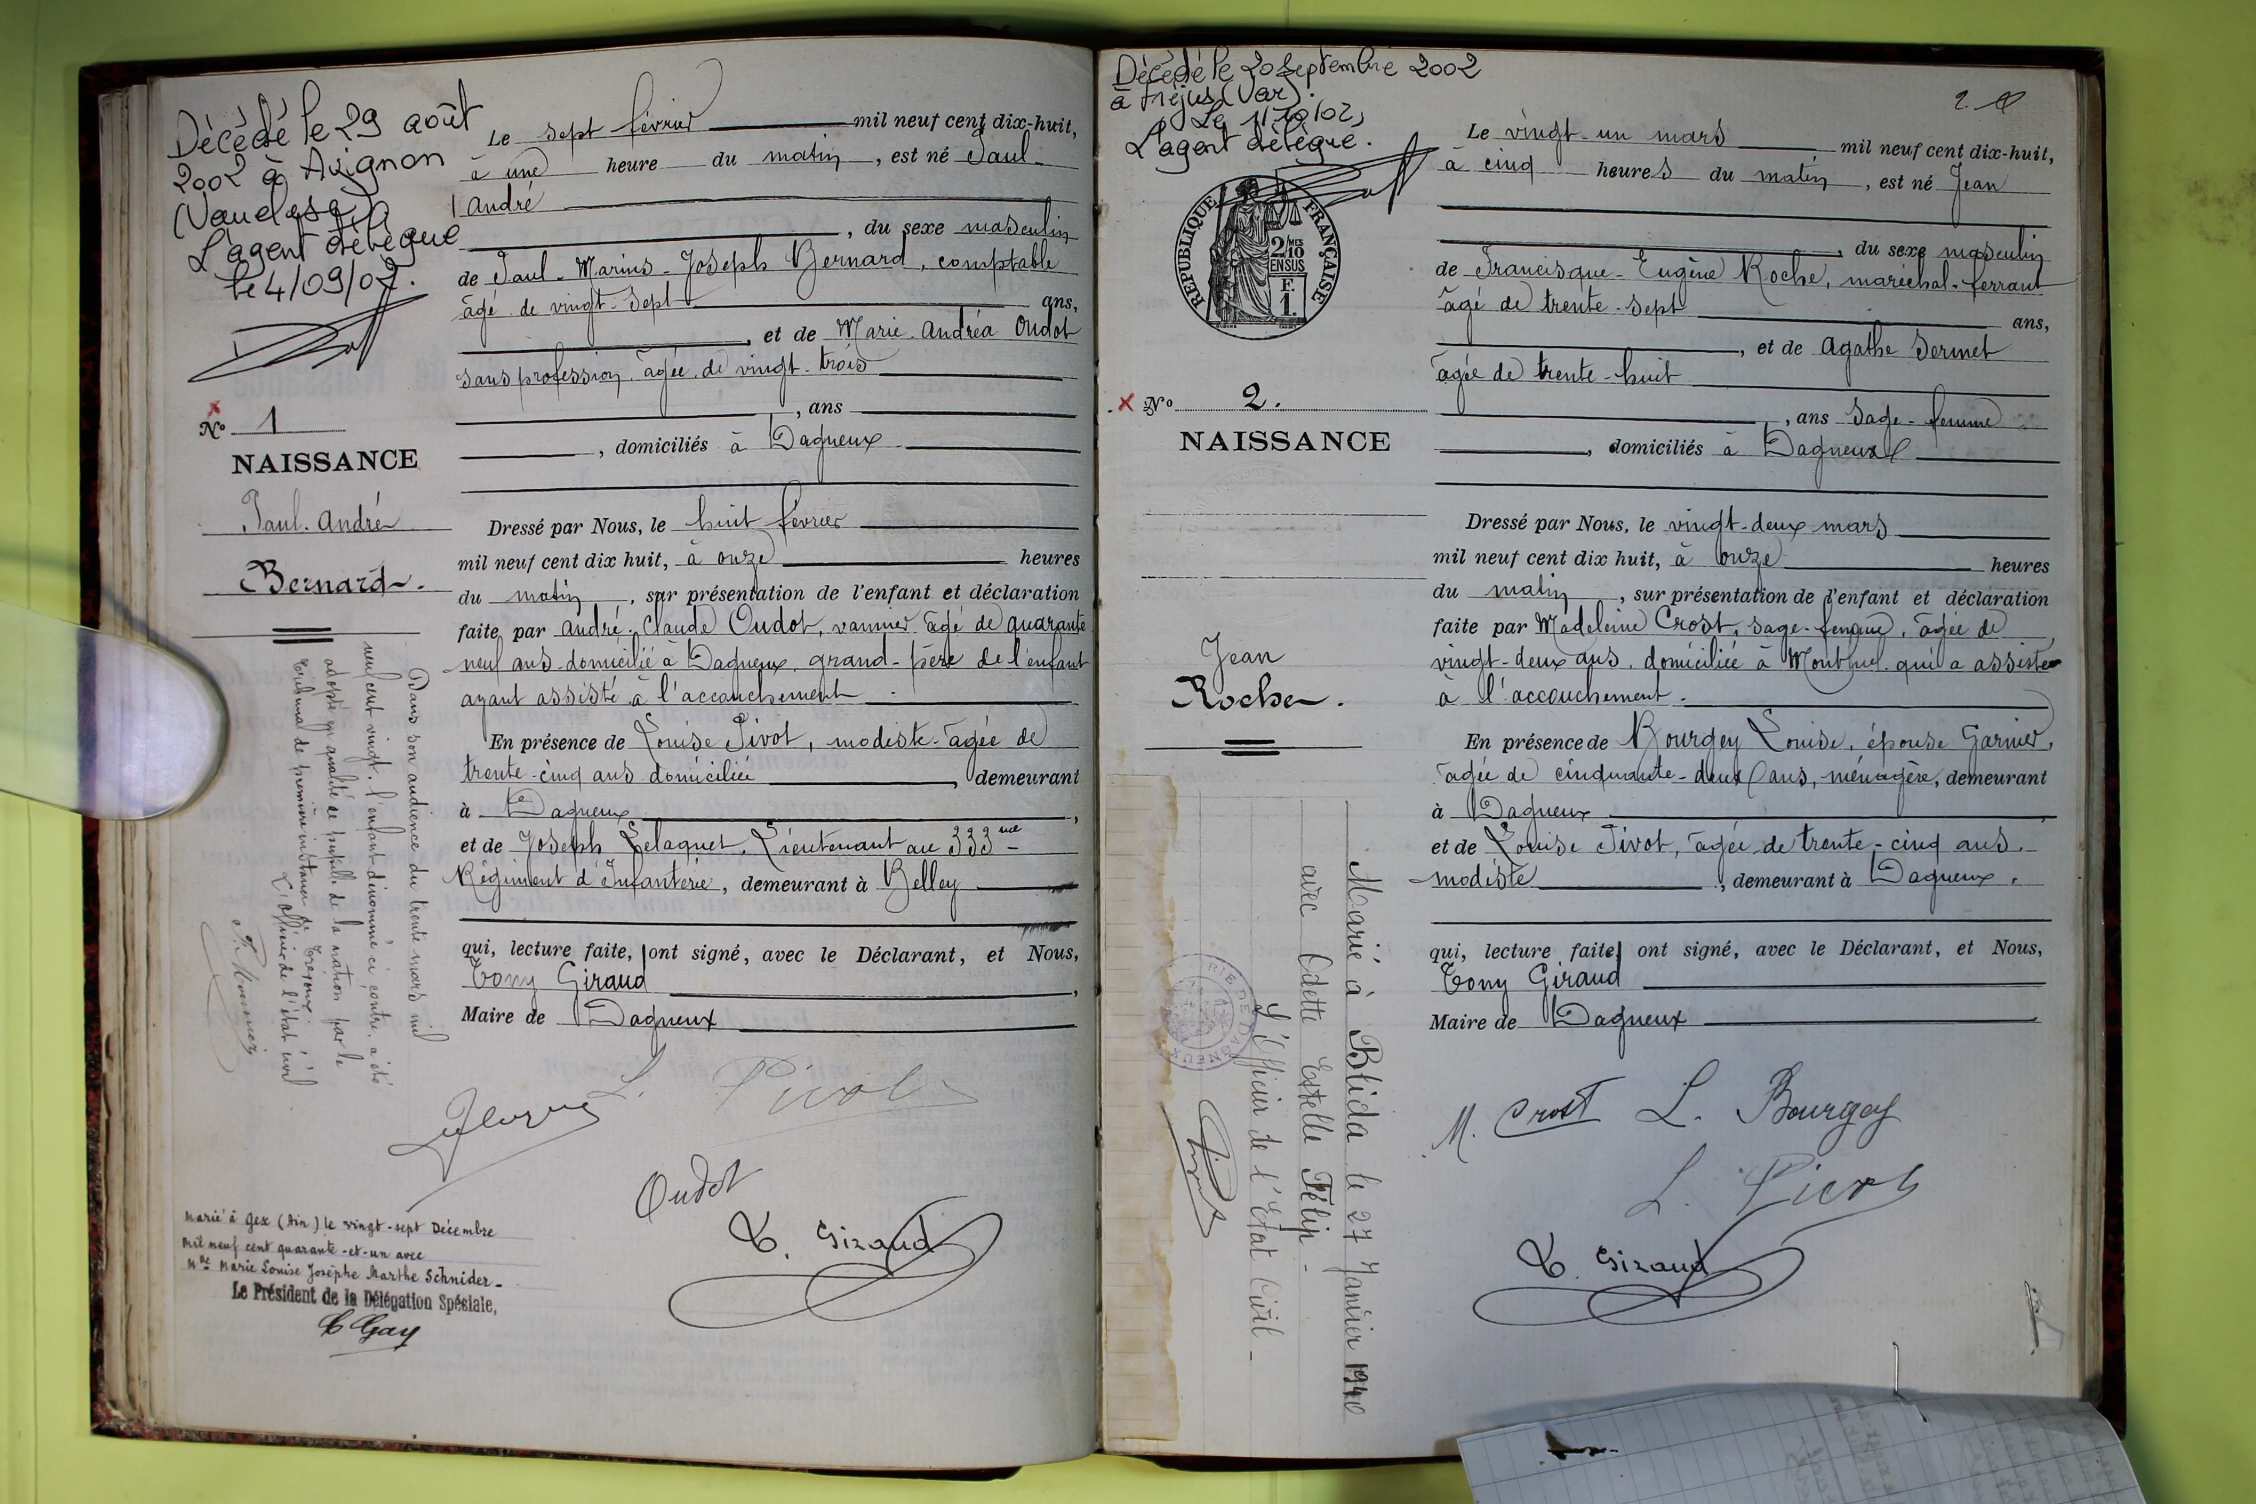 Décédé le 29 août
2002 à Avignon
(Vaucluse)
L'agent délégué
le 4/09/02.
Le sept février mil neuf cent dix-huit,
à une heure du matin, est né Paul-
André
, du sexe masculin
de Paul-Marius-Joseph Bernard, comptable
âgé de vingt-sept ans,
, et de Marie Andréa Oudot
sans profession, âgée de vingt-trois
, ans
, domiciliés à Dagneux
No 1
NAISSANCE
Paul-André
Bernard.
Dressé par Nous, le huit février
mil neuf cent dix huit, à onze heures
du matin, sur présentation de l'enfant et déclaration
faite par André-Claude Oudot, vannier âgé de quarante
neuf ans domicilié à Dagneux, grand-père de l'enfant
ayant assisté à l'accouchement
En présence de Louise Pivot, modiste âgée de
trente-cinq ans domiciliée, demeurant
à Dagneux,
et de Joseph Lelaquet, Lieutenant au 333me
Régiment d'Infanterie, demeurant à Belley
qui, lecture faite, ont signé, avec le Déclarant, et Nous,
Tony Giraud,
Maire de Dagneux
Dans son audience du trente mars mil
neuf cent vingt, l'enfant dénommé ci contre, a été
adopté en qualité de pupille de la nation par le
Tribunal de première instance de Trévoux.
L'officier de l'état civil
L. Pivot
Oudot
T. Giraud
Marié à Gex (Ain) le vingt-sept Décembre
mil neuf cent quarante-et-un avec
Mlle Marie Louise Josèphe Marthe Schnider-
Le Président de la Délégation Spéciale,
Gay
Décédé le 20 septembre 2002
à Fréjus (Var).
Le 11/10/02,
L'agent délégué.
2.
RÉPUBLIQUE FRANÇAISE
2/10 MES
EN SUS
F.
1.
Le vingt-un mars mil neuf cent dix-huit,
à cinq heures du matin, est né Jean
, du sexe masculin
de Francisque-Eugène Roche, maréchal-ferrant
âgé de trente-sept ans,
, et de Agathe Sermet
âgée de trente-huit
, ans sage-femme
, domiciliés à Dagneux
No 2.
NAISSANCE
Jean
Roche.
Dressé par Nous, le vingt-deux mars
mil neuf cent dix huit, à onze heures
du matin, sur présentation de l'enfant et déclaration
faite par Madeleine Crost, sage-femme, âgée de
vingt-deux ans, domiciliée à Montluel qui a assisté
à l'accouchement.
En présence de Bourgey Louise, épouse Garnier,
âgée de cinquante-deux ans, ménagère, demeurant
à Dagneux,
et de Louise Pivot, âgée de trente-cinq ans
modiste, demeurant à Dagneux.
qui, lecture faite, ont signé, avec le Déclarant, et Nous,
Tony Giraud
Maire de Dagneux
Marié à Blida le 27 Janvier 1940
avec Odette Estelle Félip-
L'Officier de l'Etat Civil-
M. Crost L. Bourgey
L. Pivot
T. Giraud